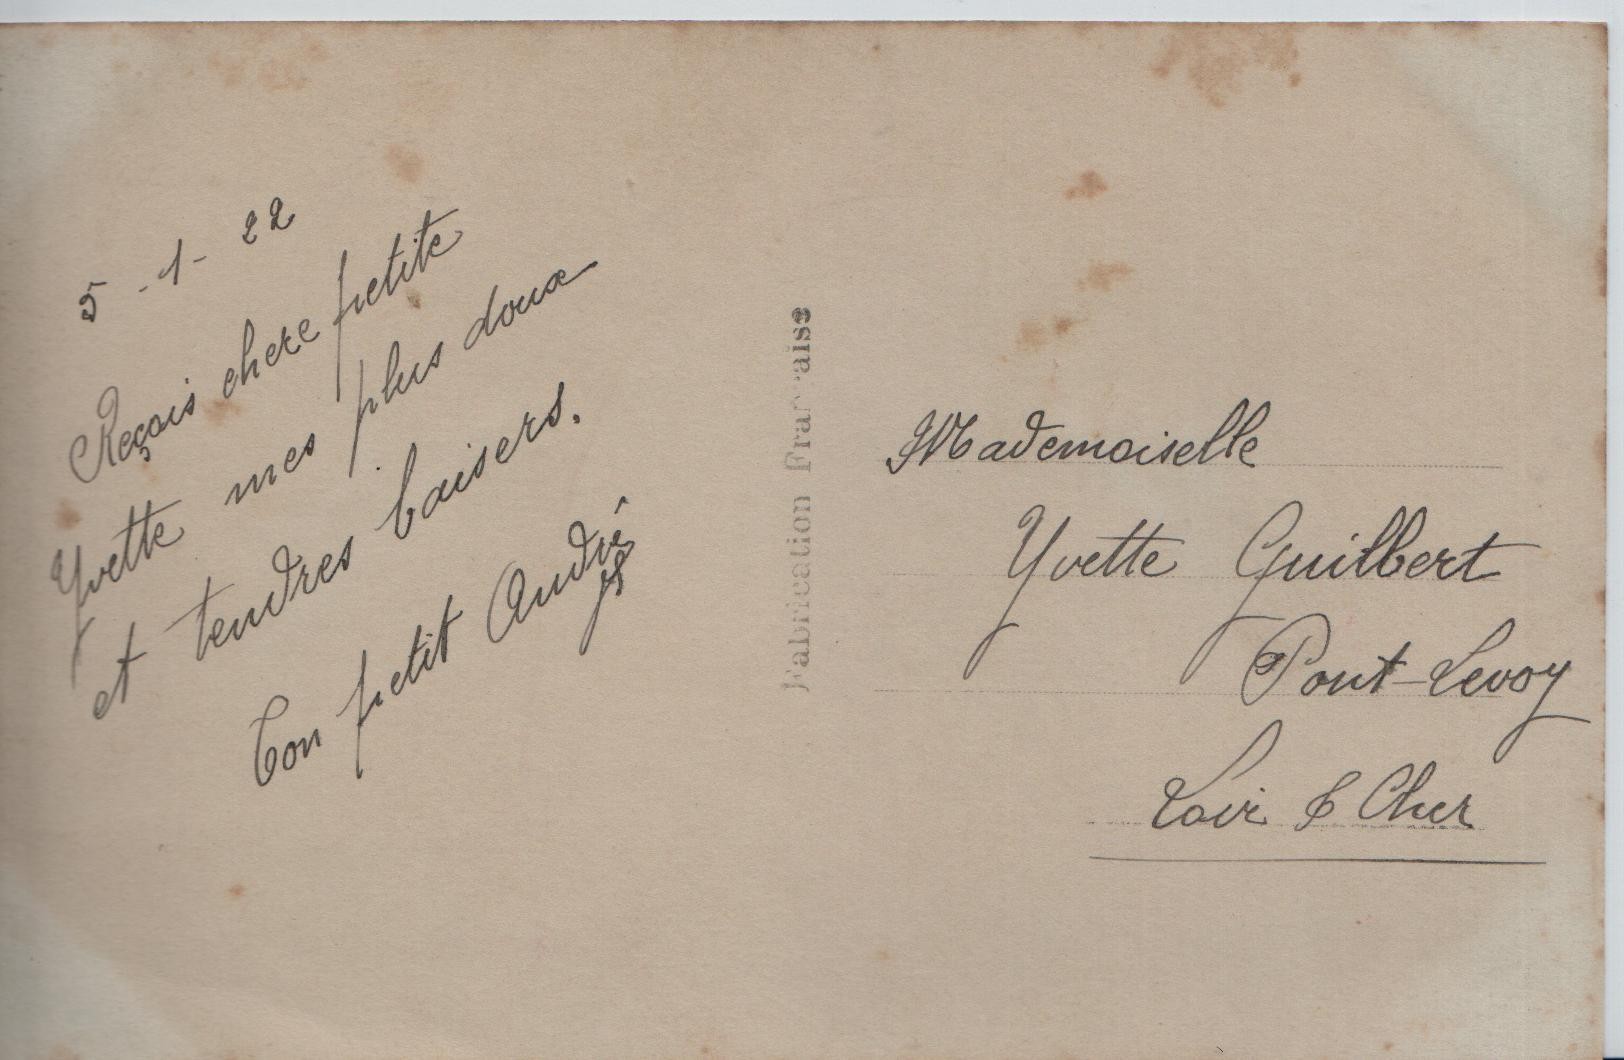 5 - 1 - 22
Reçois chere petite
Yvette mes plus doux
et tendres baisers.
Ton petit André
Fabrication Française
Mademoiselle
Yvette Guilbert
Pont-Levoy
Loir & Cher